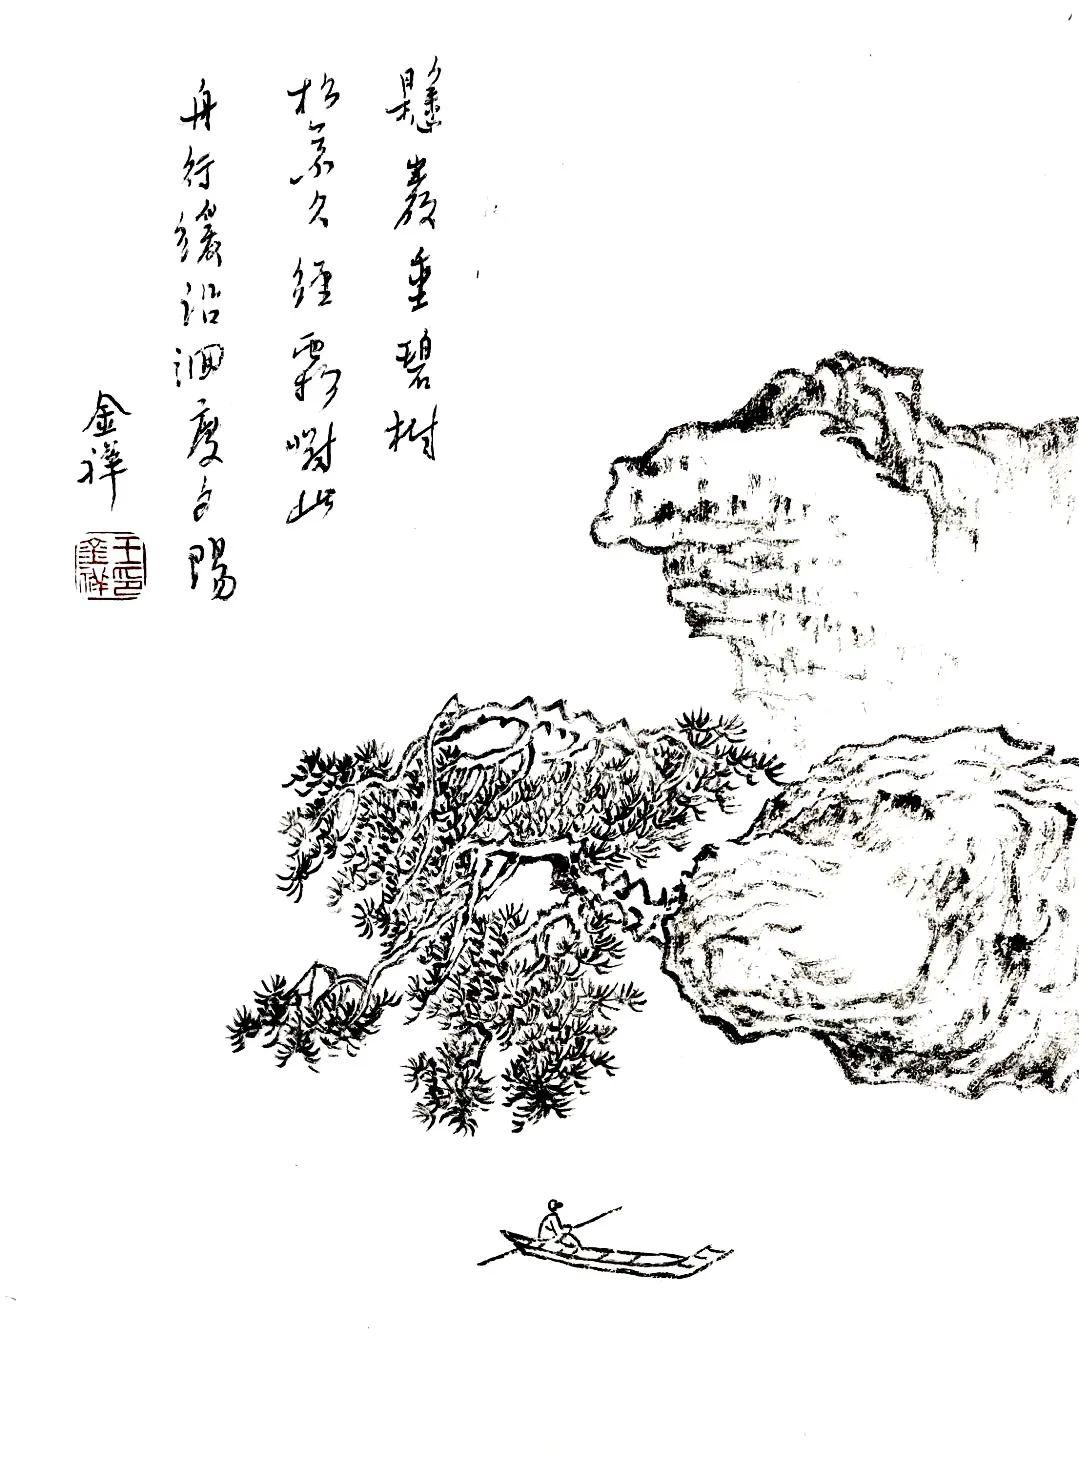 懸巖垂碧樹
松久經霜對此
舟行緩沿洄度夕陽
金祥
王印
金祥